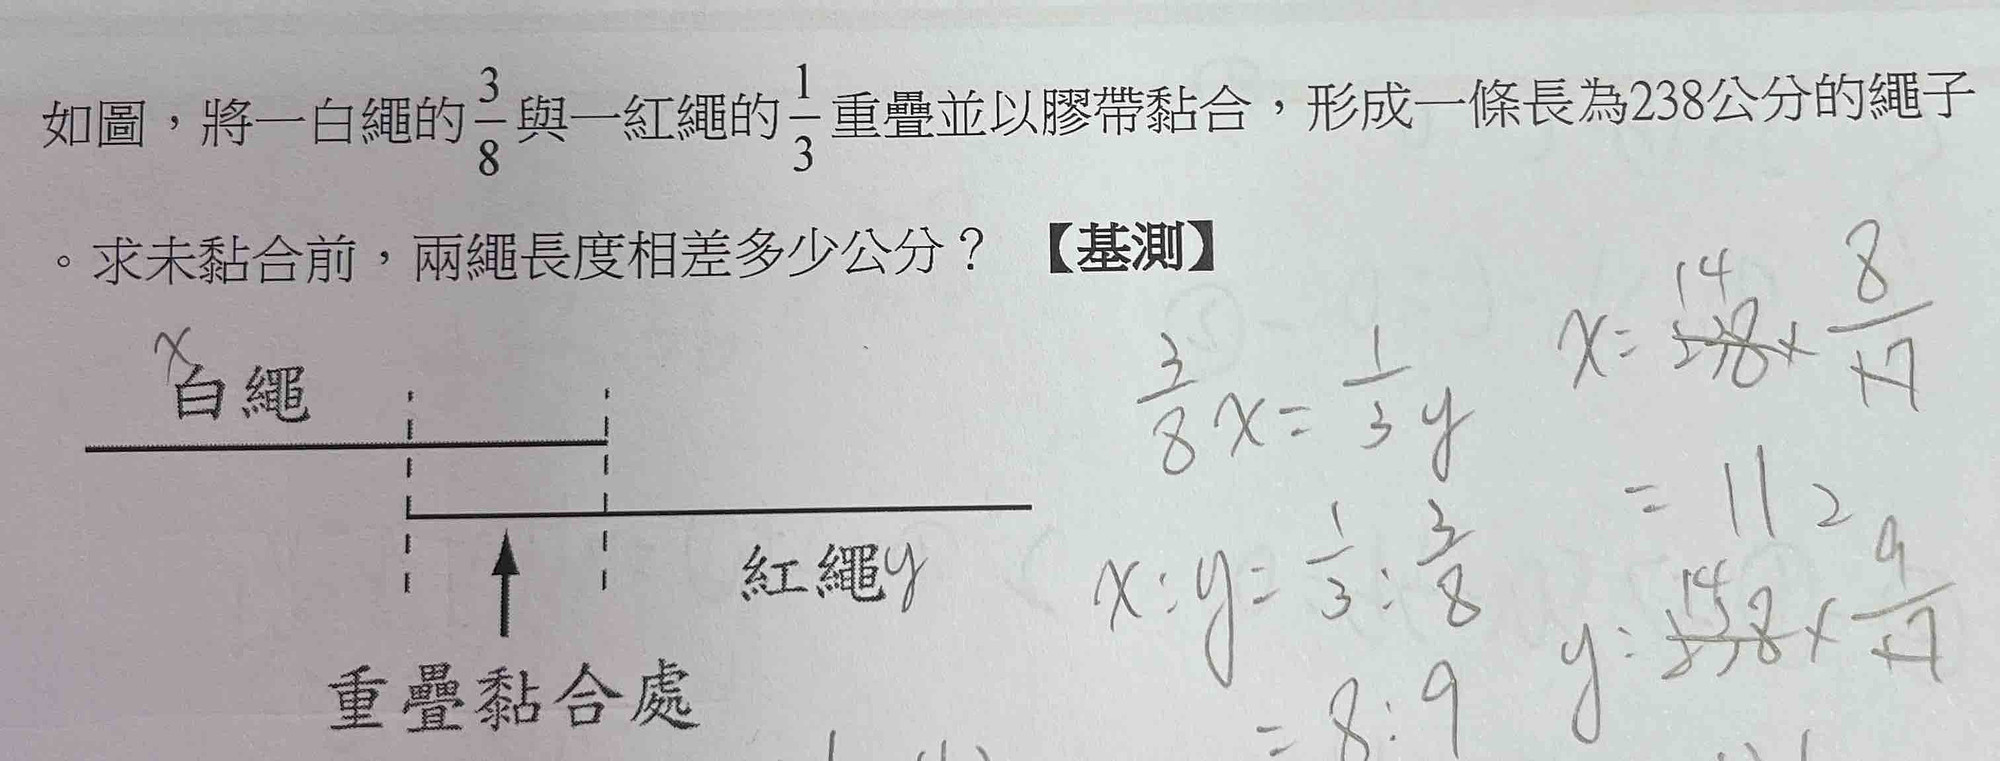 如圖，將一白繩的3/8與一紅繩的1/3重疊並以膠帶黏合，形成一條長為238公分的繩子
。求未黏合前，兩繩長度相差多少公分？【基測】
x
白繩
紅繩y
重疊黏合處
3/8 x = 1/3 y
x : y = 1/3 : 3/8
= 8 : 9
14
x = 238 × 8/17
= 112
14
y = 238 × 9/17